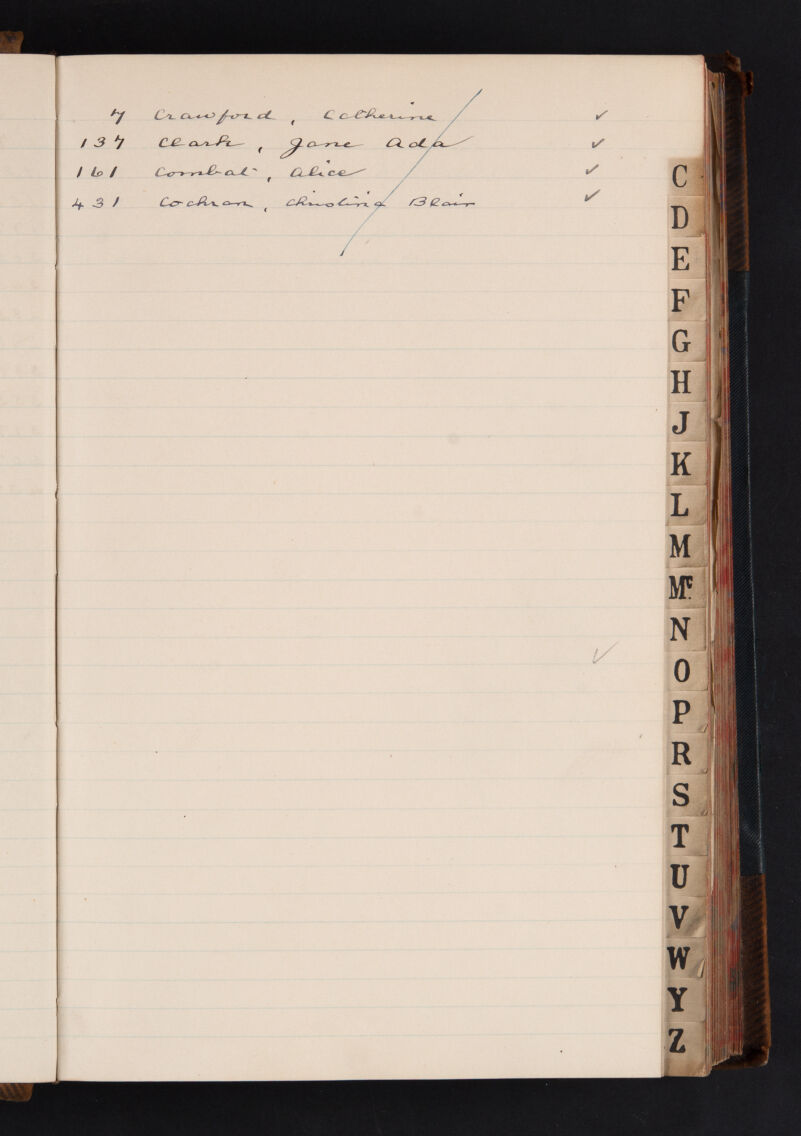 7 Crawford, Catherine ✓
137 Clark, Jane Ada ✓
161 Combat, Alice ✓
431 Cochran, Christina Blair ✓
✓
C
D
E
F
G
H
J
K
L
M
Mc
N
O
P
R
S
T
U
V
W
Y
Z